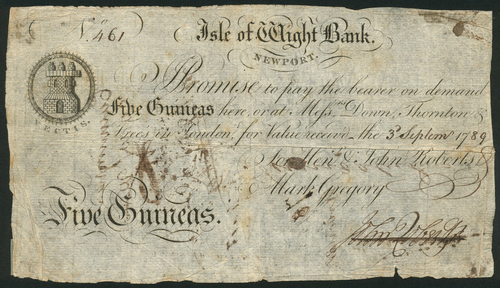 No. 461
Isle of Wight Bank.
NEWPORT.
I Promise to pay the bearer on demand
Five Guineas here, or at Messrs. Down, Thornton &
Frees in London, for Value receiv'd the 3d Septemr 1789
VECTIS.
For Allen & John Roberts
Mark Gregory
Five Guineas.
John Roberts